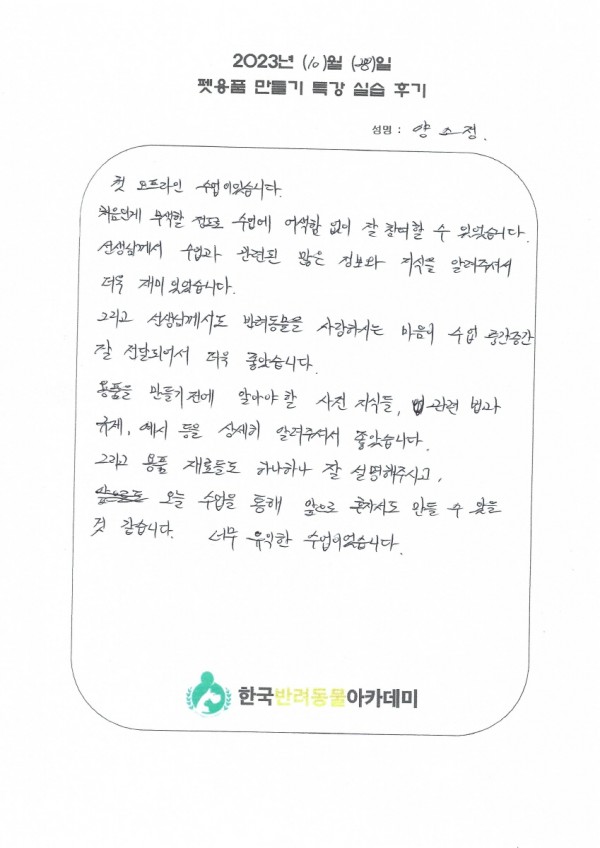 2023년 (10)월 (28)일
펫용품 만들기 특강 실습 후기
성명 : 양 소 정.
첫 오프라인 수업이었습니다.
처음인게 무색할 정도로 수업에 어색함 없이 잘 참여할 수 있었습니다.
선생님께서 수업과 관련된 많은 정보와 지식을 알려주셔서
더욱 재미있었습니다.
그리고 선생님께서도 반려동물을 사랑하시는 마음이 수업 중간중간
잘 전달되어서 더욱 좋았습니다.
용품을 만들기 전에 알아야 할 사전 지식들, 관련 법과
규제, 예시 등을 상세히 알려주셔서 좋았습니다.
그리고 용품 재료들도 하나하나 잘 설명해주시고,
앞으로도 오늘 수업을 통해 앞으로 혼자서도 만들 수 있을
것 같습니다. 너무 유익한 수업이었습니다.
한국반려동물아카데미